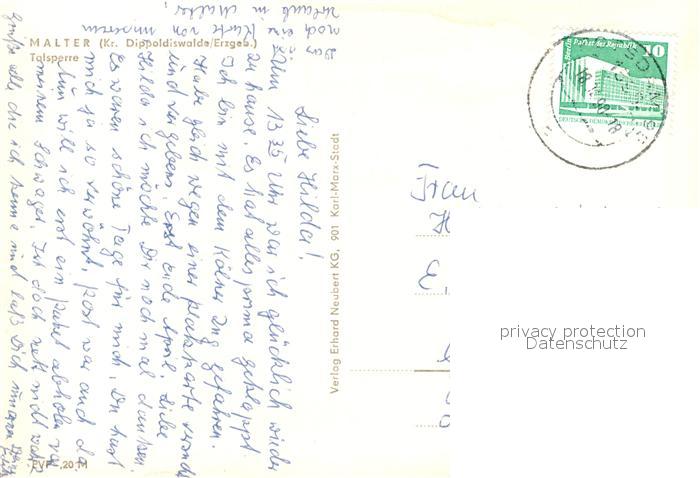 MALTER (Kr. Dippoldiswalde/Erzgeb.)
Talsperre
Liebe Hilda!
Um 13 35 Uhr war ich glücklich wieder
zu hause. Es hat alles prima geklappt.
Ich bin mit dem Kölner Zug gefahren.
Habe gleich wegen einer Platzkarte versucht
und vergebens. Erst Ende April. Liebe
Hilda ich möchte Dir noch mal danken.
Es waren schöne Tage für mich, Du hast
mich ja so verwöhnt, Post war auch da
Nun will ich erst ein Paket abholen von
meinem Schwager. Ist doch nett nicht wahr?
Grüße alle die ich kenne und laß Dich
Das
noch eine Karte von unserem
Urlaub in Malter.
EVP -,20 M
Verlag Erhard Neubert KG, 901 Karl-Marx-Stadt
Berlin Palast der Republik
10
Frau
H
E.
privacy protection
Datenschutz